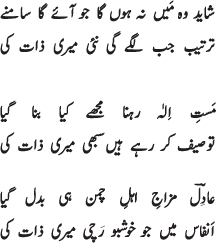 شاید وہ مَیں نہ ہوں گا جو آئے گا سامنے
ترتیب جب لگے گی نئی میری ذات کی
مَستِ اِلٰہ رہنا مجھے کیا بنا گیا
توصیف کر رہے ہیں سبھی میری ذات کی
عادِلؔ مزاجِ اہلِ چمن ہی بدل گیا
اَنفاس میں جو خوشبو رَچی میری ذات کی